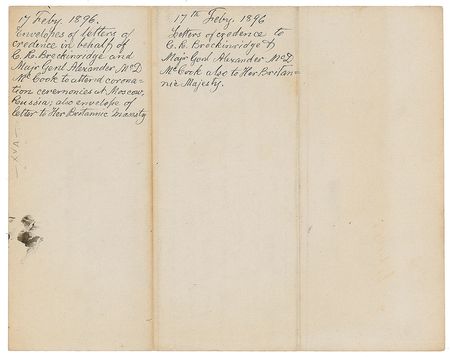 17 Feby. 1896.
Envelopes of letters of
credence in behalf of
C. R. Breckinridge and
Majr Genl Alexander McD.
McCook to attend corona-
tion ceremonies at Moscow,
Russia; also envelope of
letter to Her Britannic Majesty
17th Feby. 1896
Letters of credence to
C. R. Breckinridge &
Majr Genl Alexander McD.
McCook also to Her Britan-
nic Majesty.